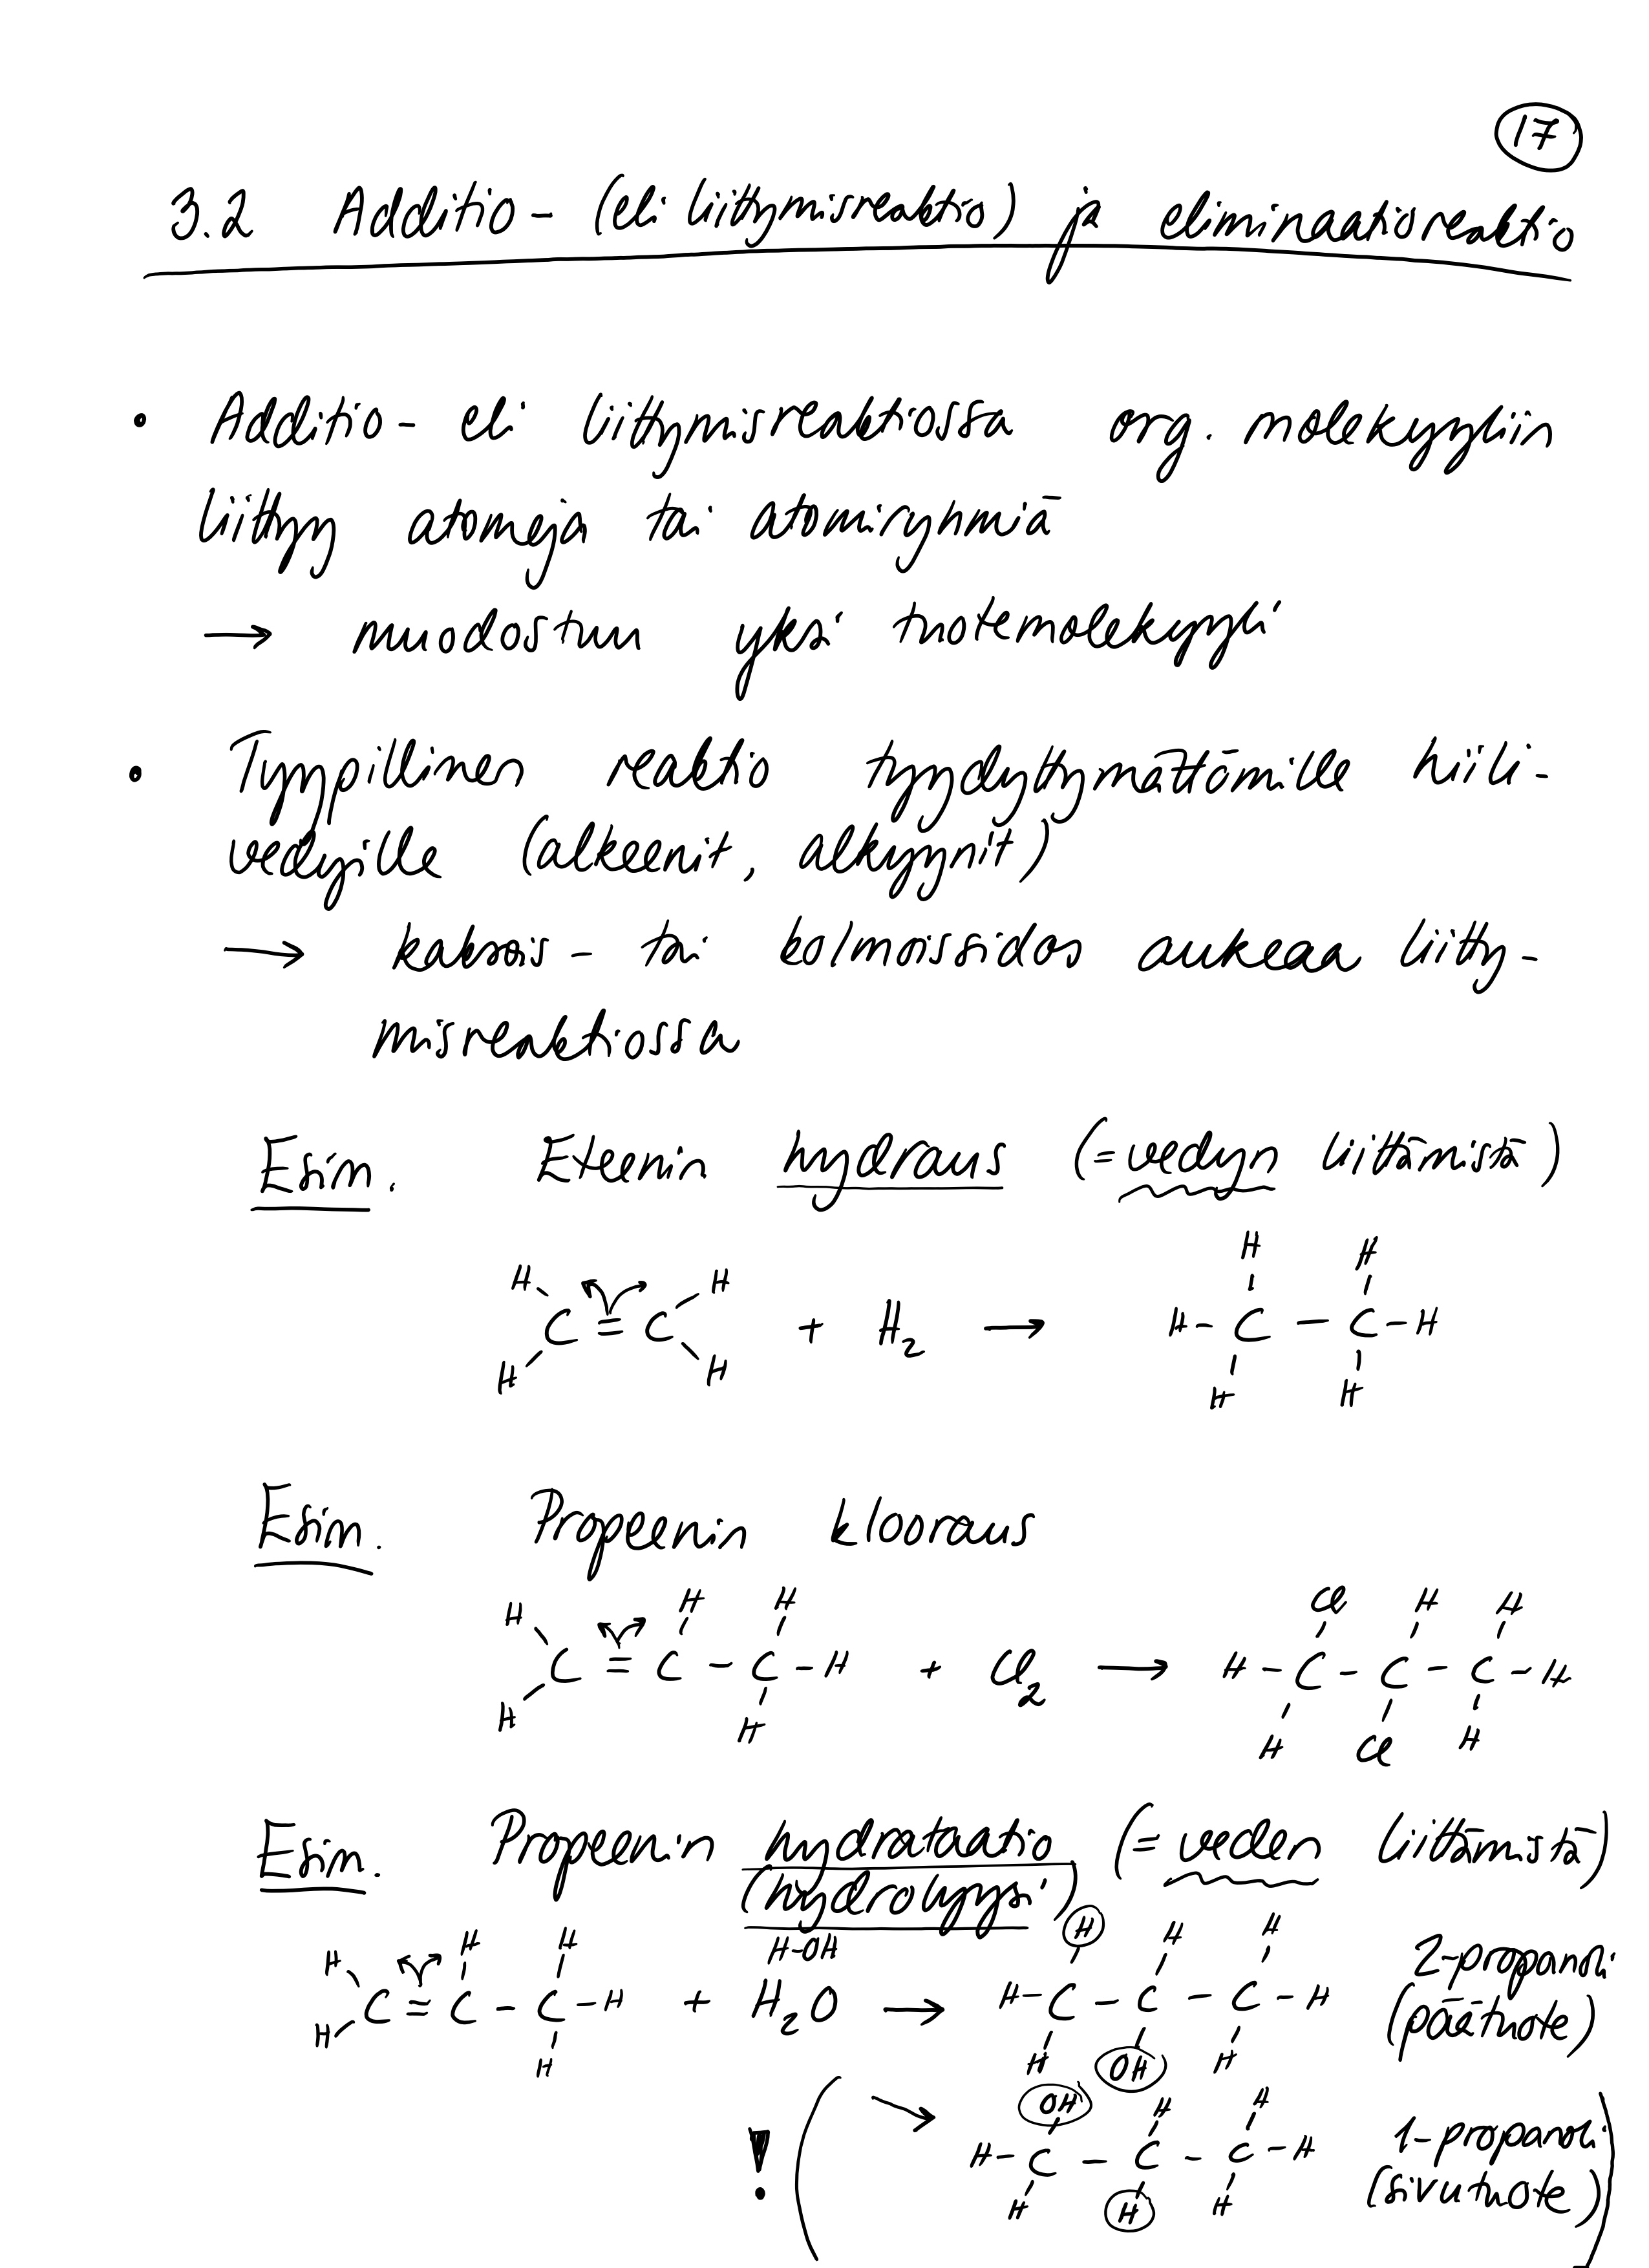 17
3.2 Additio- (eli liittymisreaktio) ja eliminaatioreaktio
• Additio- eli liittymisreaktiossa org. molekyyliin
liittyy atomeja tai atomiryhmiä
→ muodostuu yksi tuotemolekyyli
• Tyypillinen reaktio tyydyttymättömille hiili-
vedyille (alkeenit, alkyynit)
→ kaksois- tai kolmoissidos aukeaa liitty-
misreaktiossa
Esim. Eteenin hydraus (= vedyn liittämistä)
H H H H
C = C + H₂ → H - C - C - H
H H H H
Esim. Propeenin klooraus
H H H Cl H H
C = C - C - H + Cl₂ → H - C - C - C - H
H H H Cl H
Esim. Propeenin hydrataatio (= veden liittämistä)
(hydrolyysi)
H H H H-OH H H H 2-propanoli
C = C - C - H + H₂O → H - C - C - C - H (päätuote)
H H H OH H
OH H H 1-propanoli
! ( → H - C - C - C - H (sivutuote) )
H H H